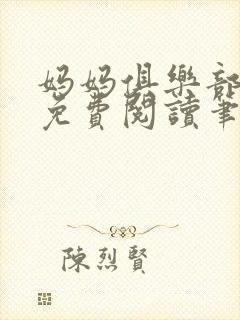 妈妈俱樂部
免費閱讀筆
陳烈賢